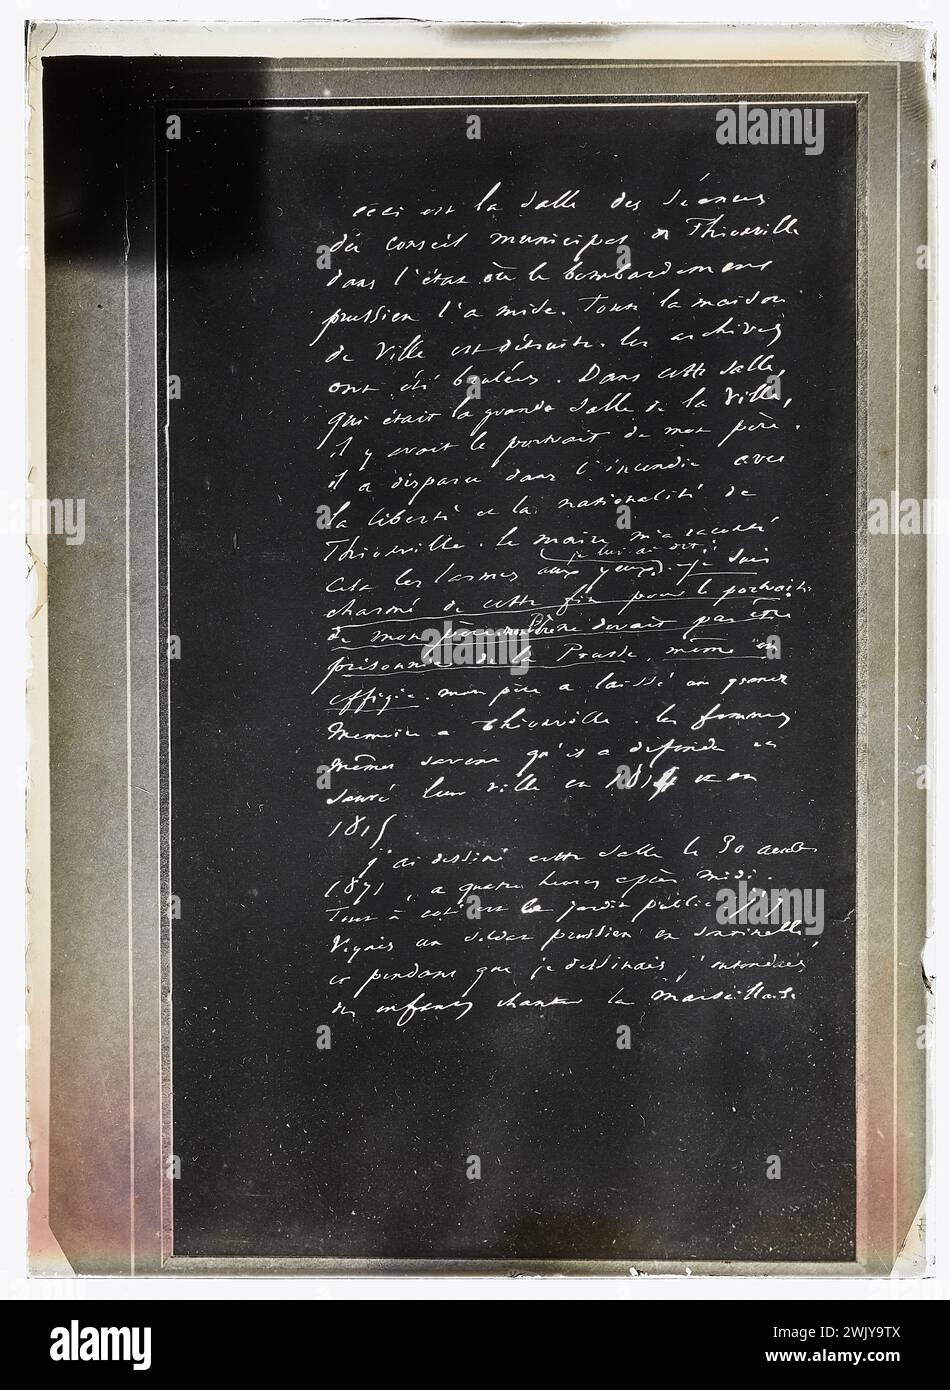 ceci est la salle des séances
du conseil municipal de Thionville
dans l'état où le bombardement
prussien l'a mise. Toute la maison
de Ville est détruite. les archives
ont été brulées. Dans cette salle,
qui était la grande salle de la Ville,
il y avait le portrait de mon père.
il a disparu dans l'incendie avec
la liberté et la nationalité de
Thionville. le maire m'a raconté
cela les larmes aux yeux. je lui ai dit : je suis
charmé de cette fin pour le portrait
de mon père. mon père ne devait pas être
prisonnier de la Prusse, même en
effigie. mon père a laissé une grande
mémoire a Thionville. les femmes
mêmes savent qu'il a défendu et
sauvé leur ville en 1814 et en
1815
j'ai dessiné cette salle le 30 août
1871, a quatre heures après midi.
Tout à côté est le jardin public. j'y
voyais un soldat prussien en sentinelle,
et pendant que je dessinais j'entendais
des enfants chanter la marseillaise
alamy
a
alamy
Image ID: 2WJY9TX
www.alamy.com